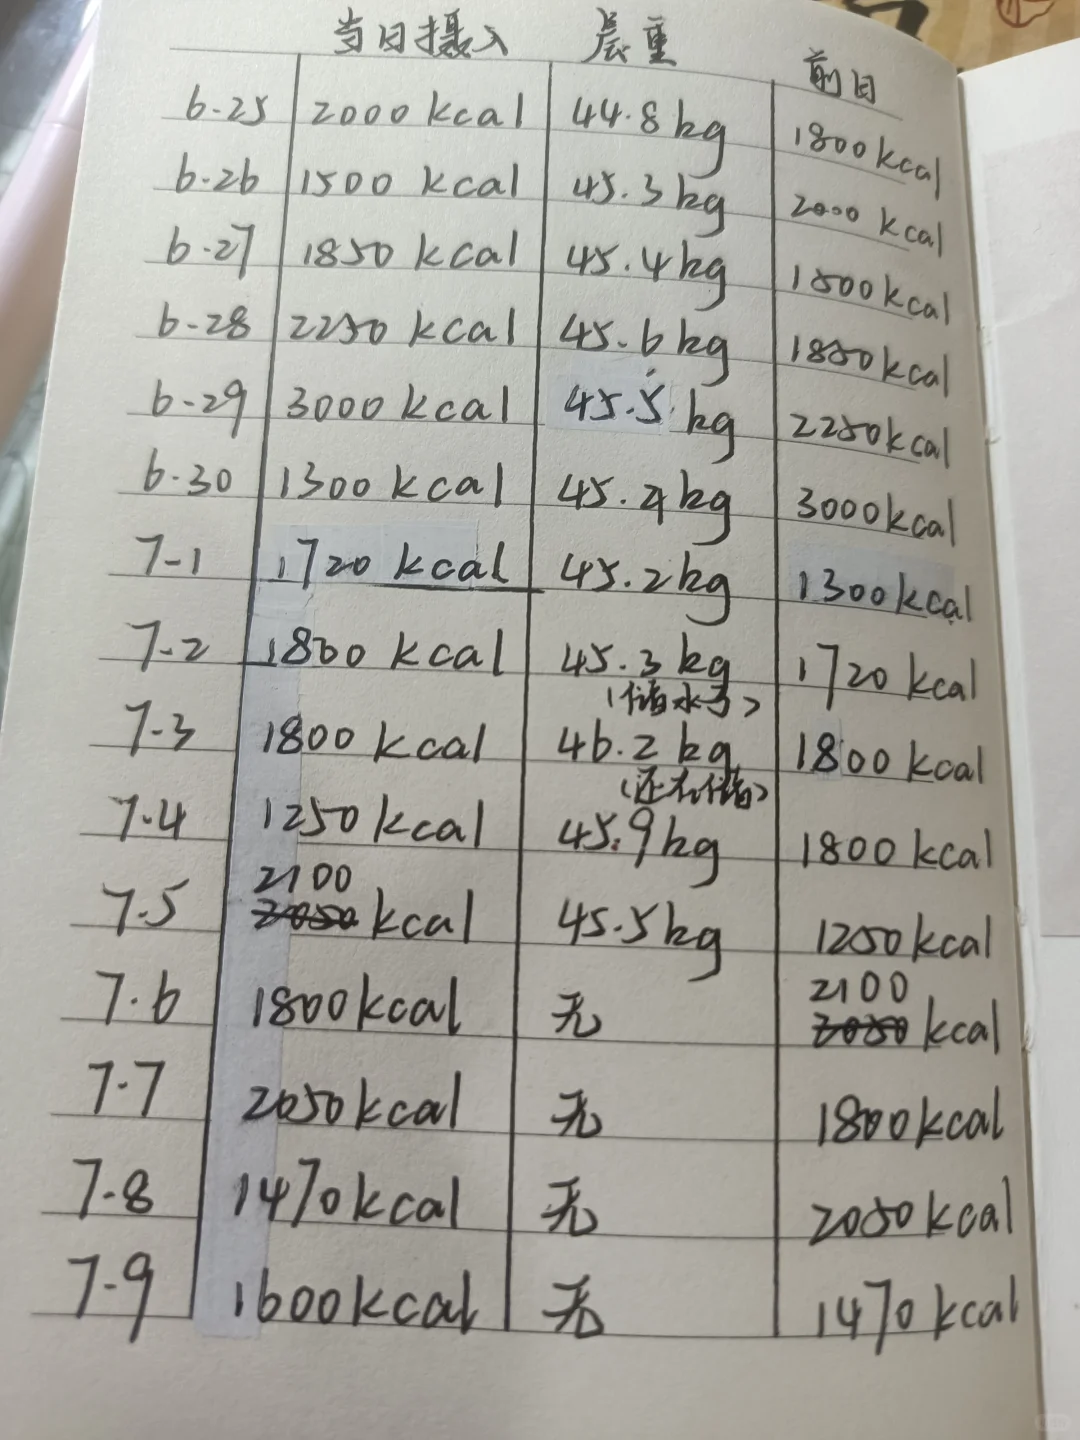 当日摄入 晨重 前日
6.25 2000 kcal 44.8 kg 1800 kcal
6.26 1500 kcal 45.3 kg 2000 kcal
6.27 1850 kcal 45.4 kg 1500 kcal
6.28 2250 kcal 45.6 kg 1850 kcal
6.29 3000 kcal 45.5 kg 2250 kcal
6.30 1300 kcal 45.4 kg 3000 kcal
7-1 1720 kcal 45.2 kg 1300 kcal
7-2 1800 kcal 45.3 kg 1720 kcal
(储水了)
7-3 1800 kcal 46.2 kg 1800 kcal
(还在储)
7.4 1250 kcal 45.9 kg 1800 kcal
7.5 2100 kcal 45.5 kg 1250 kcal
7.6 1800 kcal 无 2100 kcal
7.7 2050 kcal 无 1800 kcal
7-8 1470 kcal 无 2050 kcal
7-9 1600 kcal 无 1470 kcal